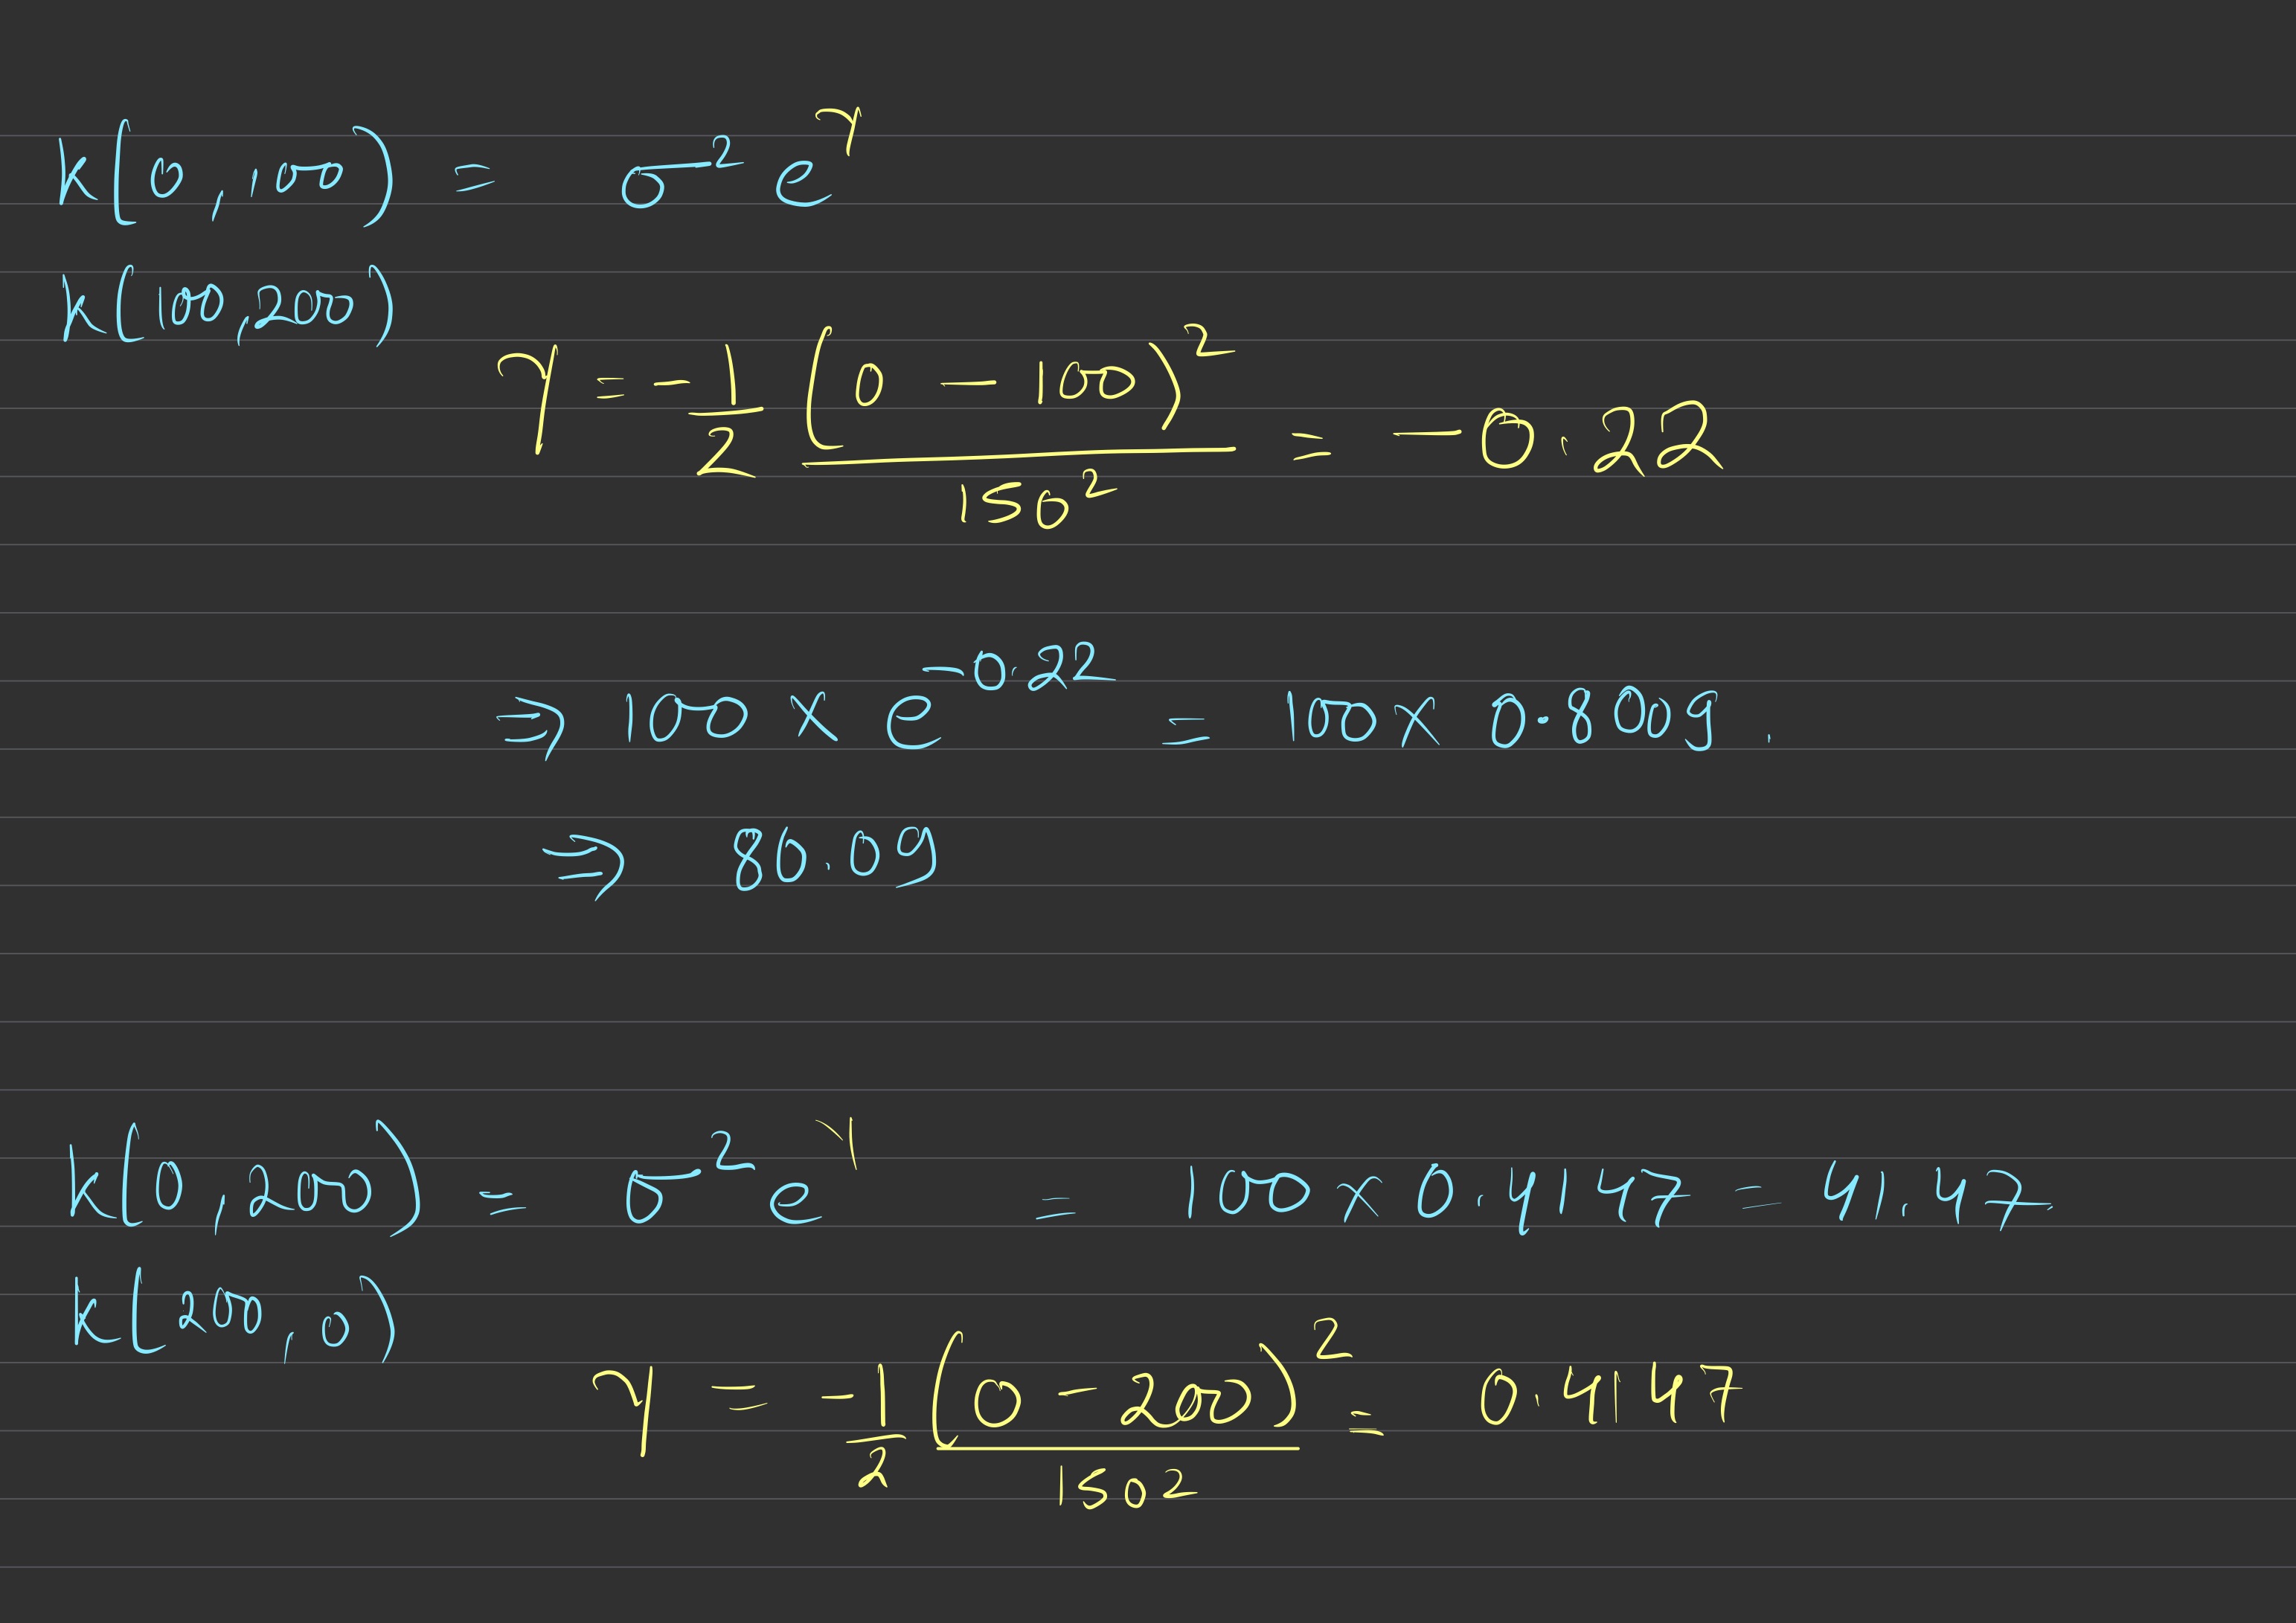 k(0,100) = σ² e^γ
k(100,200)
γ = -1/2 (0 - 100)²/150² = -0.22
⇒ 100 × e^-0.22 = 100 × 0.8009.
⇒ 80.09
k(0,200) = σ² e^γ = 100 × 0.4147 = 41.47
k(200,0)
γ = -1/2 (0 - 200)²/150² = 0.4147